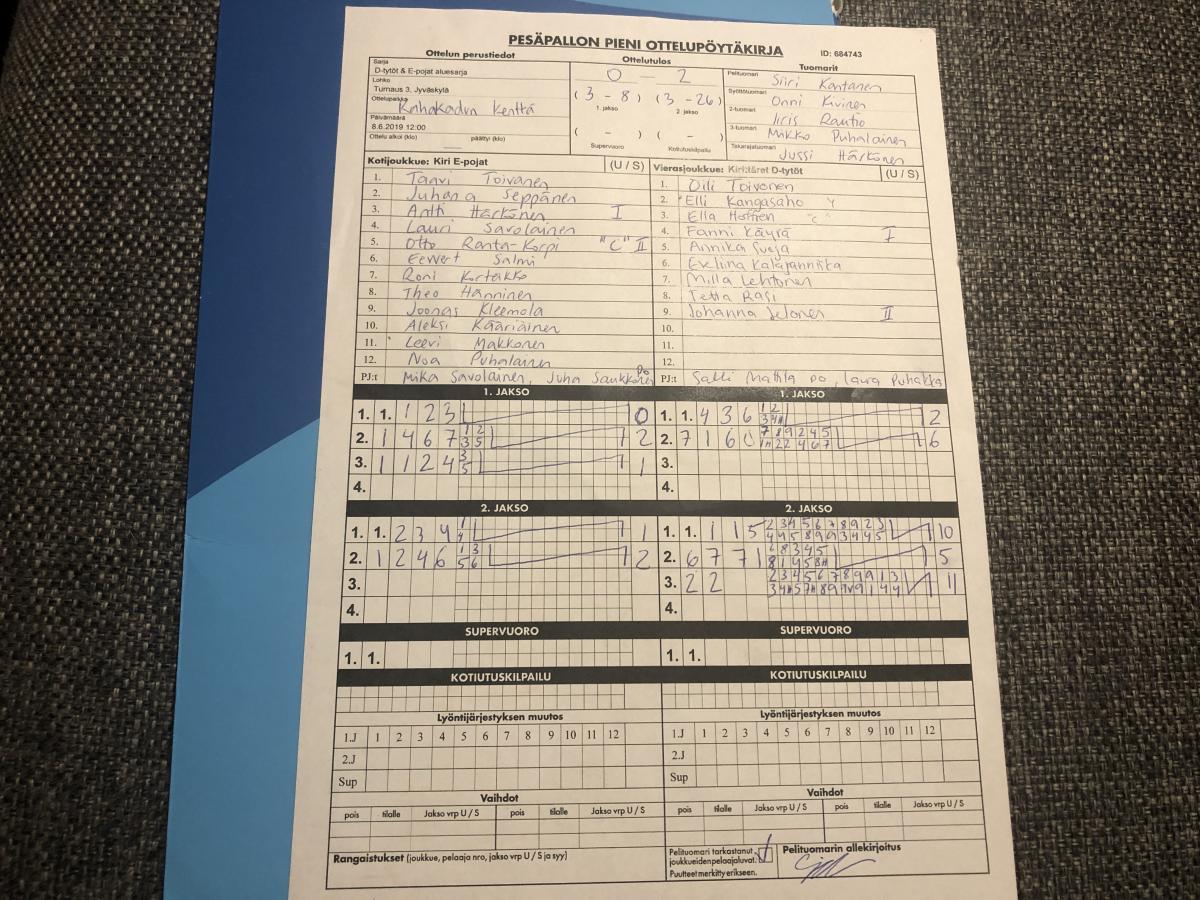 PESÄPALLON PIENI OTTELUPÖYTÄKIRJA
ID: 684743
Ottelun perustiedot
Ottelutulos
Tuomarit
Sarja
D-tytöt & E-pojat aluesarja
Lohko
Turnaus 3, Jyväskylä
Ottelupaikka
Kenttä
Päivämäärä
8.6.2019 12:00
Ottelu alkoi (klo) päättyi (klo)
0 – 2
(3 – 8) (3 – 26)
1. jakso 2. jakso
( – ) ( – )
Supervuoro Kotiutuskilpailu
Pelituomari Siiri Kantanen
Syöttötuomari Onni Kivinen
2-tuomari Iiris Rautio
3-tuomari Mikko Puhalainen
Takarajatuomari Jussi Härkönen
Kotijoukkue: Kiri E-pojat (U / S)
1. Taavi Toivanen
2. Juhana Seppänen
3. Antti Härkönen I
4. Lauri Savolainen
5. Otto Ranta-Korpi "C" II
6. Eewert Salmi
7. Roni
8. Theo Hänninen
9. Joonas Kleemola
10. Aleksi Kääriäinen
11. Leevi Makkonen
12. Noa Puhalainen
PJ:t Mika Savolainen, Juha Saukkonen PO
Vierasjoukkue: Kirittäret D-tytöt (U / S)
1. Oili Toivonen
2. Elli Kangasaho
3. Ella "C"
4. Fanni Käyrä I
5. Annika
6. Eveliina
7. Milla Lehtonen
8. Tetta Rasi
9. Johanna II
10.
11.
12.
PJ:t Salli Mattila PO, Laura Puhakka
1. JAKSO
1. 1. 1 2 3 0
2. 1 4 6 7 1 2 3 5 2
3. 1 1 2 4 3 5 1
4.
1. JAKSO
1. 1. 4 3 6 1 2 2
2. 7 1 6 0 7 8 9 2 4 5 6
3.
4.
2. JAKSO
1. 1. 2 3 4 1 4 1
2. 1 2 4 6 1 3 5 6 2
3.
4.
2. JAKSO
1. 1. 1 1 5 2 3 4 5 6 7 8 9 2 3 10
2. 6 7 7 6 8 3 4 5 5
3. 2 2 2 3 4 5 6 7 8 9 9 1 3 11
4.
SUPERVUORO
1. 1.
SUPERVUORO
1. 1.
KOTIUTUSKILPAILU
KOTIUTUSKILPAILU
Lyöntijärjestyksen muutos
1.J 1 2 3 4 5 6 7 8 9 10 11 12
2.J
Sup
Lyöntijärjestyksen muutos
1.J 1 2 3 4 5 6 7 8 9 10 11 12
2.J
Sup
Vaihdot
pois tilalle Jakso vrp U / S pois tilalle Jakso vrp U / S
Vaihdot
pois tilalle Jakso vrp U / S pois tilalle Jakso vrp U / S
Rangaistukset (joukkue, pelaaja nro, jakso vrp U / S ja syy)
Pelituomari tarkastanut
joukkueiden pelaajaluvat.
Puutteet merkitty erikseen.
Pelituomarin allekirjoitus